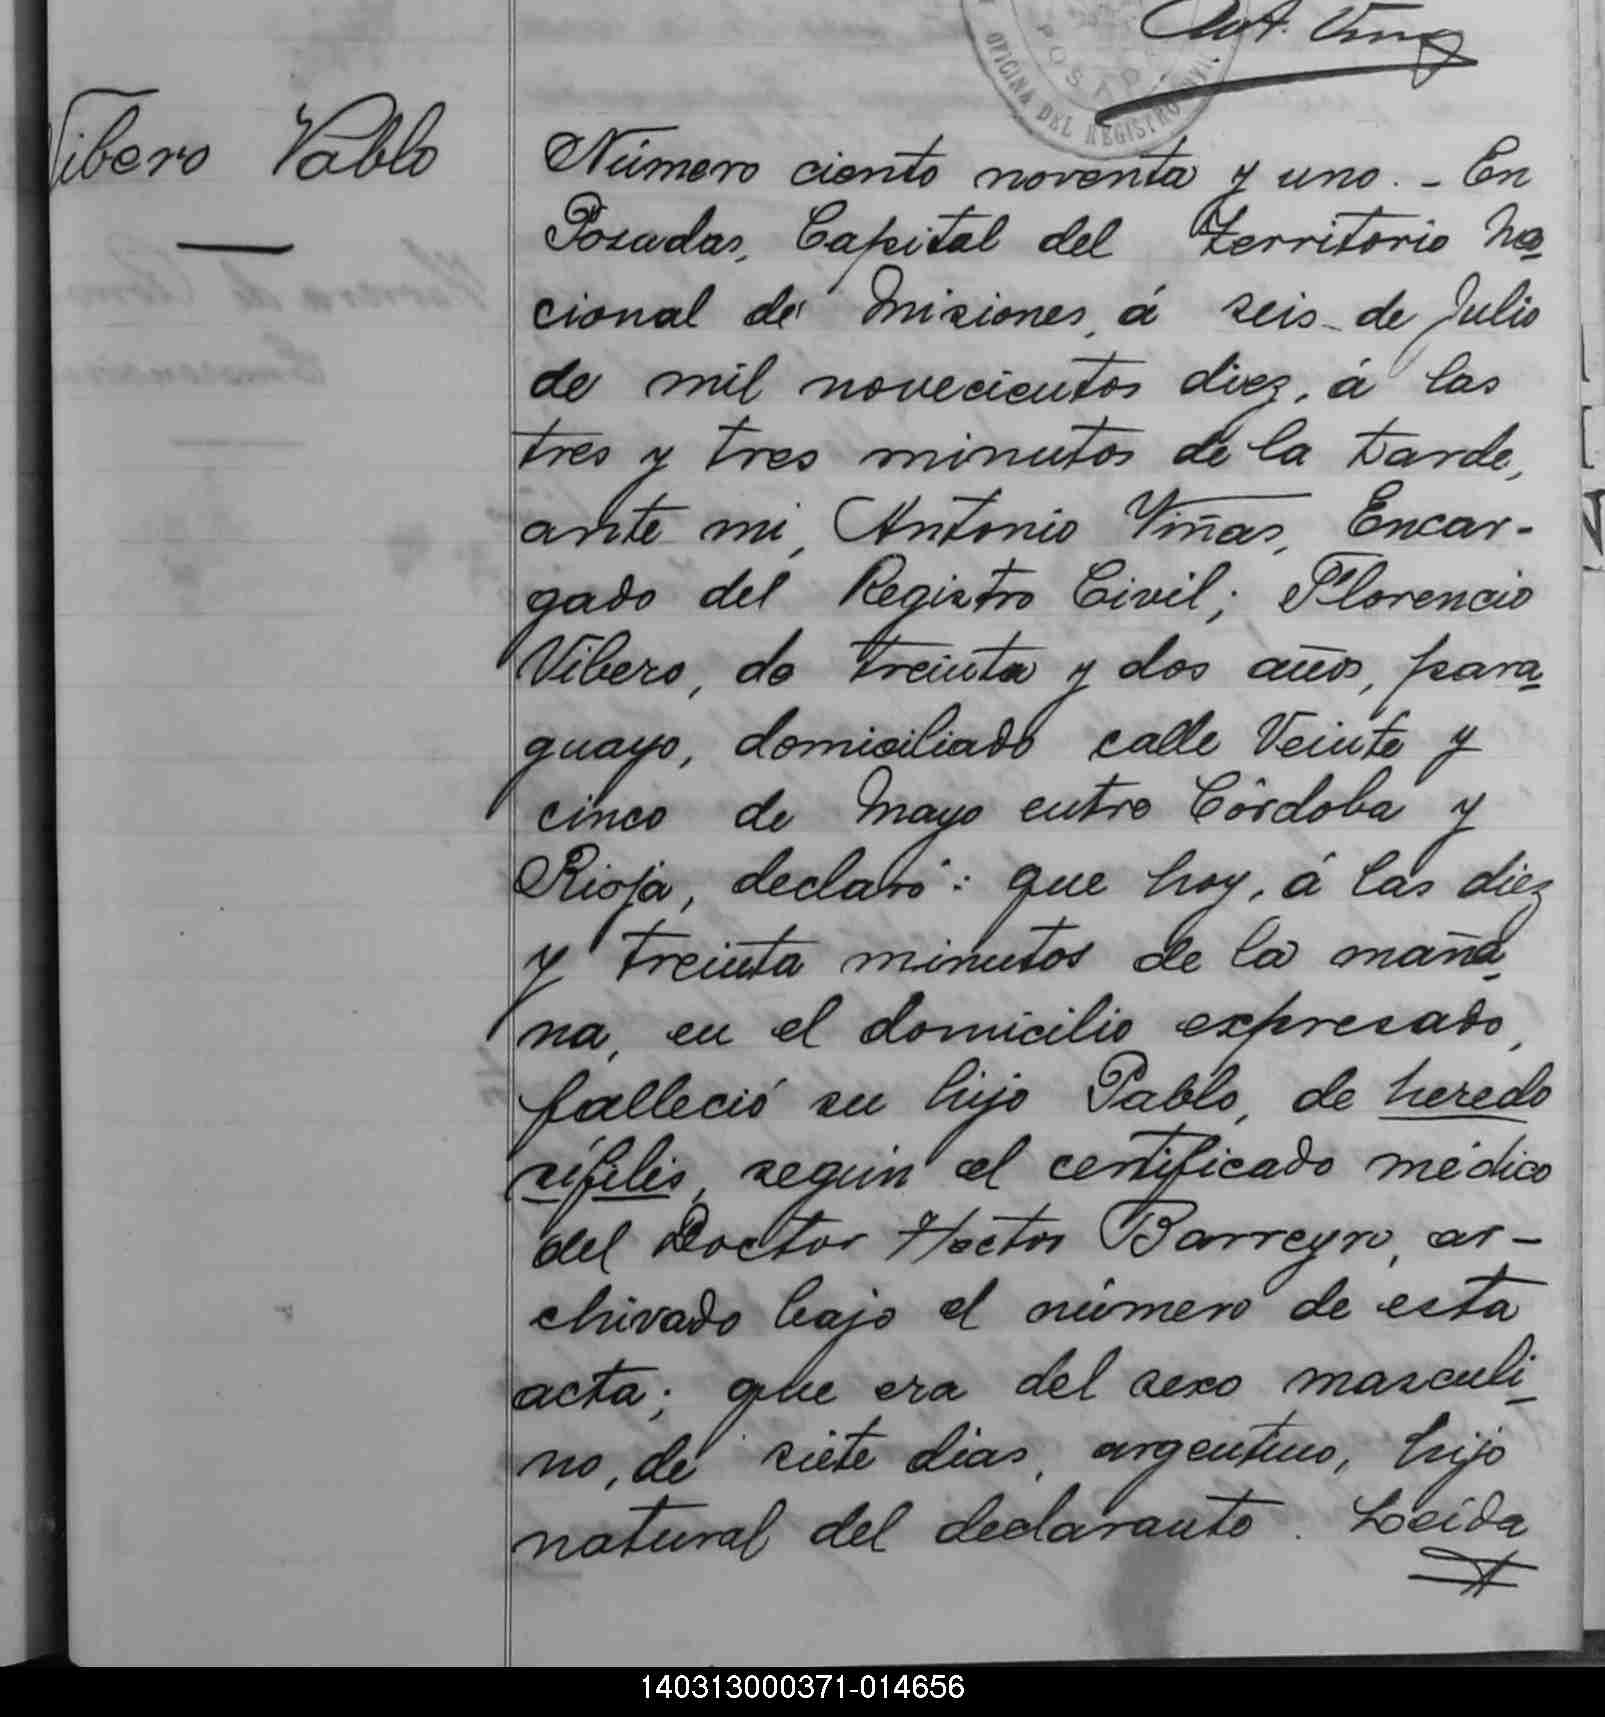 Ant. Viñas
POSADAS
OFICINA DEL REGISTRO CIVIL
Vibero Pablo
Número ciento noventa y uno. - En
Posadas, Capital del Territorio Na
cional de Misiones, á seis de Julio
de mil novecientos diez, á las
tres y tres minutos de la tarde,
ante mi, Antonio Viñas, Encar-
gado del Registro Civil; Florencio
Vibero, de treinta y dos años, para
guayo, domiciliado calle Veinte y
cinco de Mayo entre Córdoba y
Rioja, declaró: que hoy, á las diez
y treinta minutos de la maña
na, en el domicilio expresado,
falleció su hijo Pablo, de heredo
sífilis, según el certificado médico
del Doctor Hector Barreyro, ar-
chivado bajo el número de esta
acta; que era del sexo masculi
no, de siete dias, argentino, hijo
natural del declarante. Leida
140313000371-014656